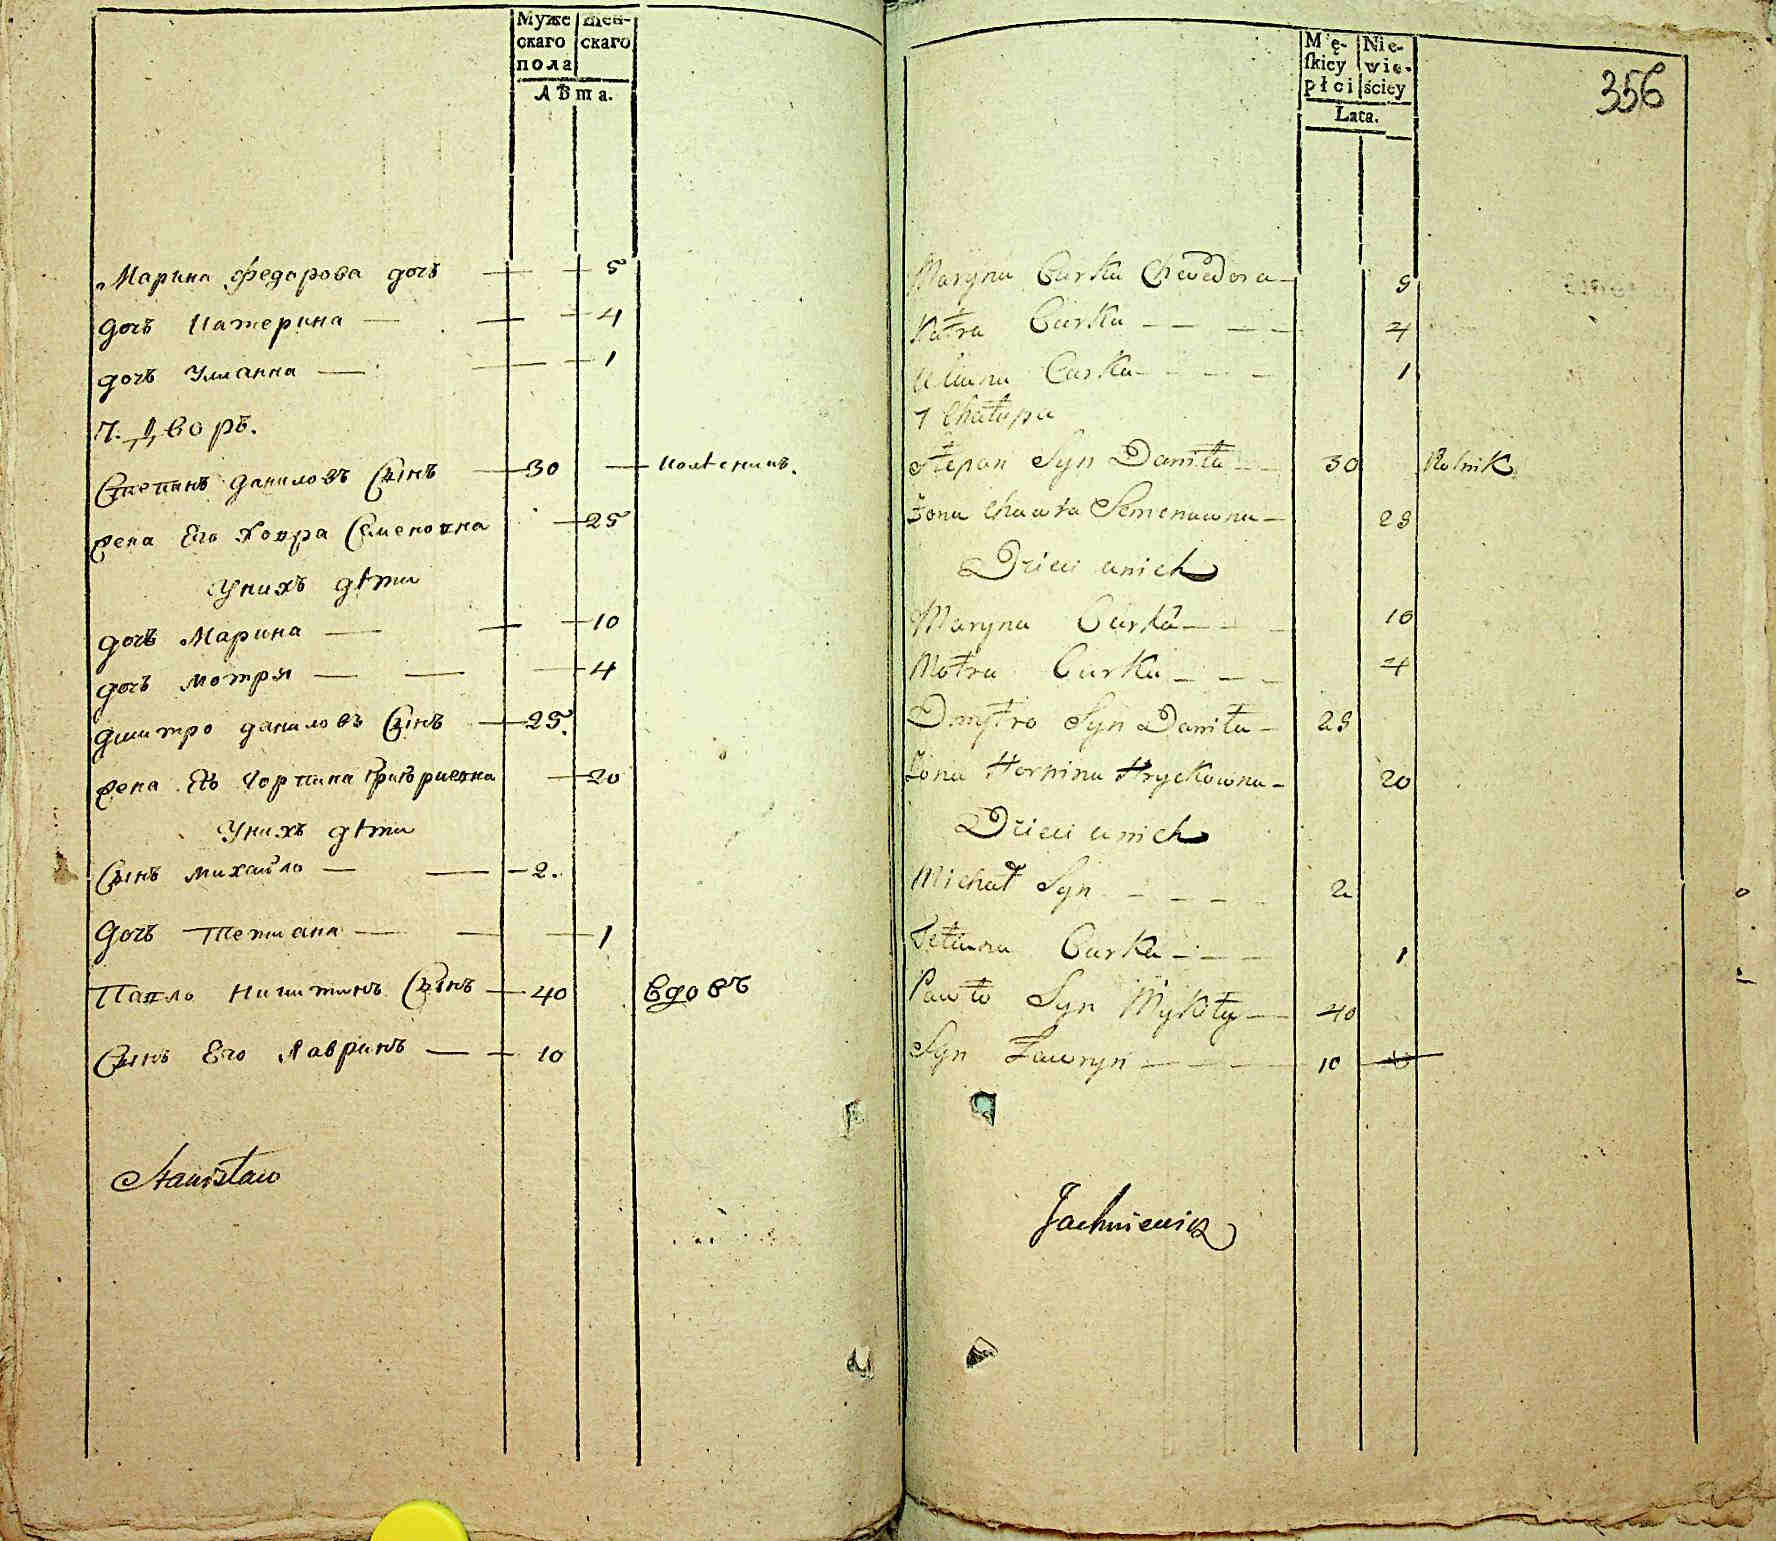 Муже
скаго
пола
жен-
скаго
Лѣта.
Марина Федорова дочъ — — 5
дочъ Катерина — — — 4
дочъ Улианна — — — 1
7. Дворъ.
Степанъ Даниловъ Сынъ — 30 —
жена Его Ховра Семеновна — 25
У нихъ дѣти
дочъ Марина — — — 10
дочъ Мотря — — — 4
Дмитро Даниловъ Сынъ — 25.
жена Его Горпина Григориевна — 20
У нихъ дѣти
Сынъ Михайло — — 2.
дочъ Тетиана — — — 1
Павло Никитинъ Сынъ — 40 вдовъ
Сынъ Его Лавринъ — — 10
Stanisław
Mę-
skiey
płci
Nie-
wie-
ściey
Lata.
356
Maryna Curka Chwedora — 5
Katra Curka — — — — 4
Uliana Curka — — — — 1
7 Chałupa
Stepan Syn Daniła — — 30 Rolnik
Żona Chawra Semenowna — 25
Dzieci u nich
Maryna Curka — — — 10
Motra Curka — — — 4
Dmytro Syn Daniła — 25
Żona Horpina Hryckowna — 20
Dzieci u nich
Michał Syn — — — — 2
Tetiana Curka — — — 1
Pawło Syn Mykity — 40
Syn Ławryn — — — — 10
Jachniewicz